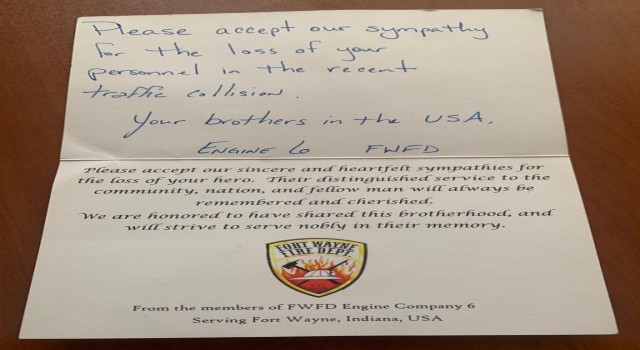 Please accept our sympathy
for the loss of your
personnel in the recent
traffic collision.
Your brothers in the USA,
ENGINE 6 FWFD
Please accept our sincere and heartfelt sympathies for
the loss of your hero. Their distinguished service to the
community, nation, and fellow man will always be
remembered and cherished.
We are honored to have shared this brotherhood, and
will strive to serve nobly in their memory.
FORT WAYNE
FIRE DEPT.
From the members of FWFD Engine Company 6
Serving Fort Wayne, Indiana, USA